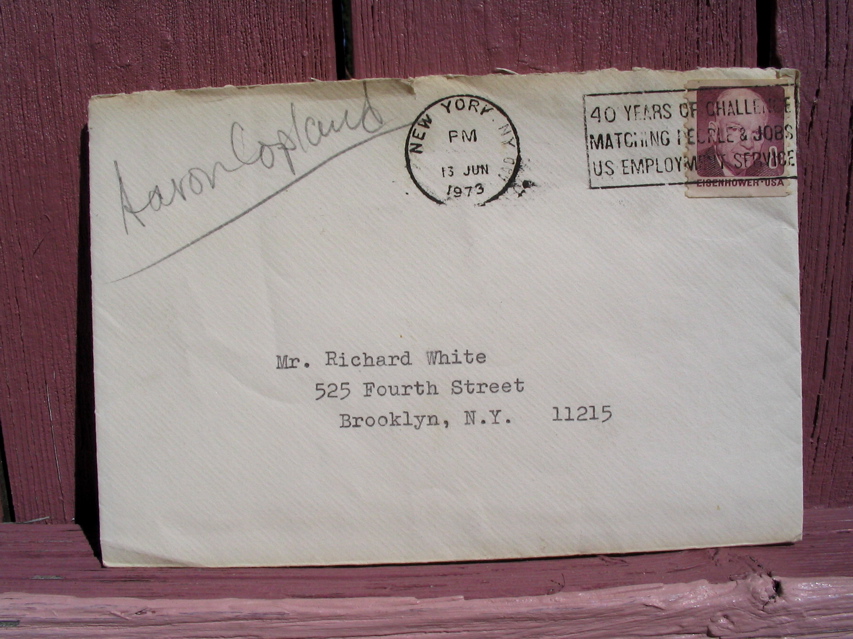 Aaron Copland
NEW YORK, NY
PM
13 JUN
1973
40 YEARS OF CHALLENGE
MATCHING PEOPLE & JOBS
US EMPLOYMENT SERVICE
EISENHOWER·USA
Mr. Richard White
525 Fourth Street
Brooklyn, N.Y. 11215